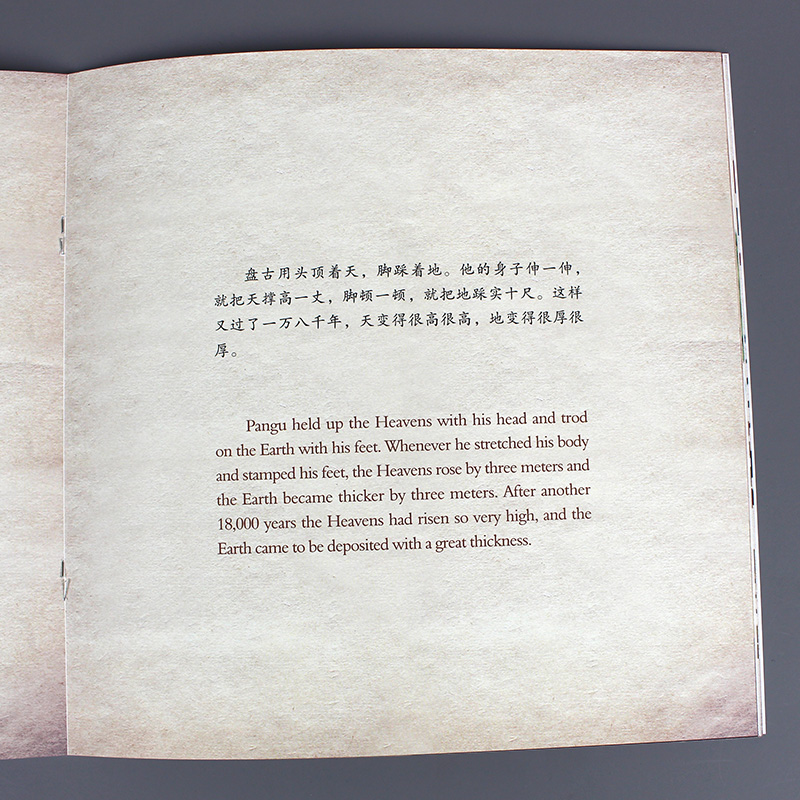 盘古用头顶着天，脚踩着地。他的身子伸一伸，
就把天撑高一丈，脚顿一顿，就把地踩实十尺。这样
又过了一万八千年，天变得很高很高，地变得很厚很
厚。
Pangu held up the Heavens with his head and trod
on the Earth with his feet. Whenever he stretched his body
and stamped his feet, the Heavens rose by three meters and
the Earth became thicker by three meters. After another
18,000 years the Heavens had risen so very high, and the
Earth came to be deposited with a great thickness.